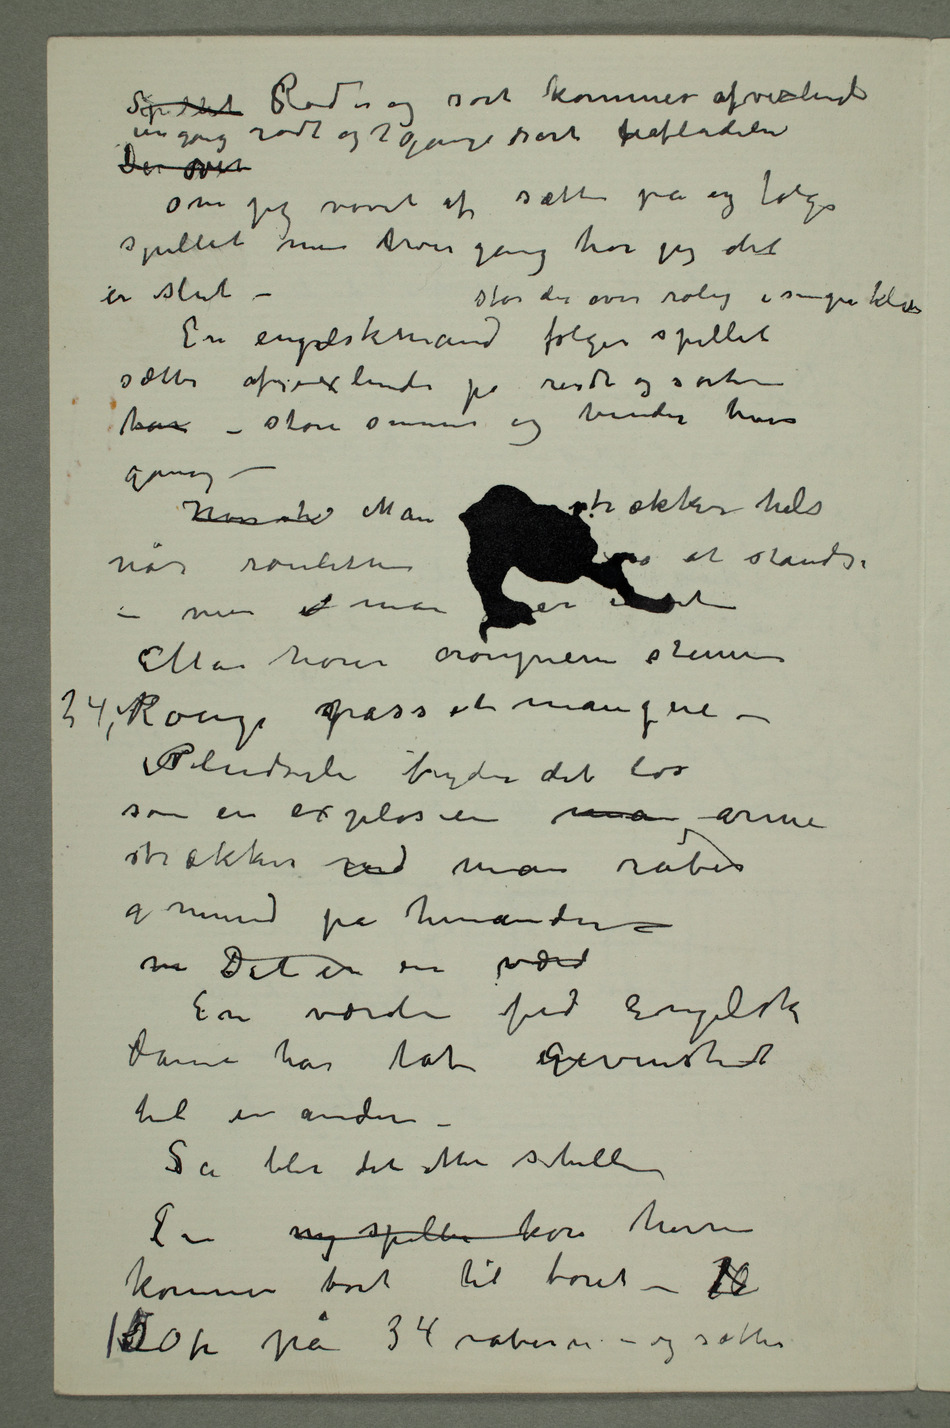 Spillet Rødt og sort kommer afvexlende
en gang rødt og 2 gange sort
Der
om jeg vovet at sætte på og følge
spillet men hver gang tror jeg det
er slut –
står der over rolig
En engelskmand følger spillet
sætter afvexlende på rødt og sort
han – store summer og vinder hver
gang –
Man strækker hals
når rouletten at standse
– men man er
Man hører croupieren stemme
34, Rouge passe et manque –
Pludselig bryder det løs
som en explosion man arme
strækkes ud man råber
i mund på hinanden –
Det er en værd
En værdig fed Engelsk
dame har tat gevinsted
til en anden –
Så blir det atter stille
En ny spiller herre
kommer bort til bordet –
fr på 34 råber – og sætter